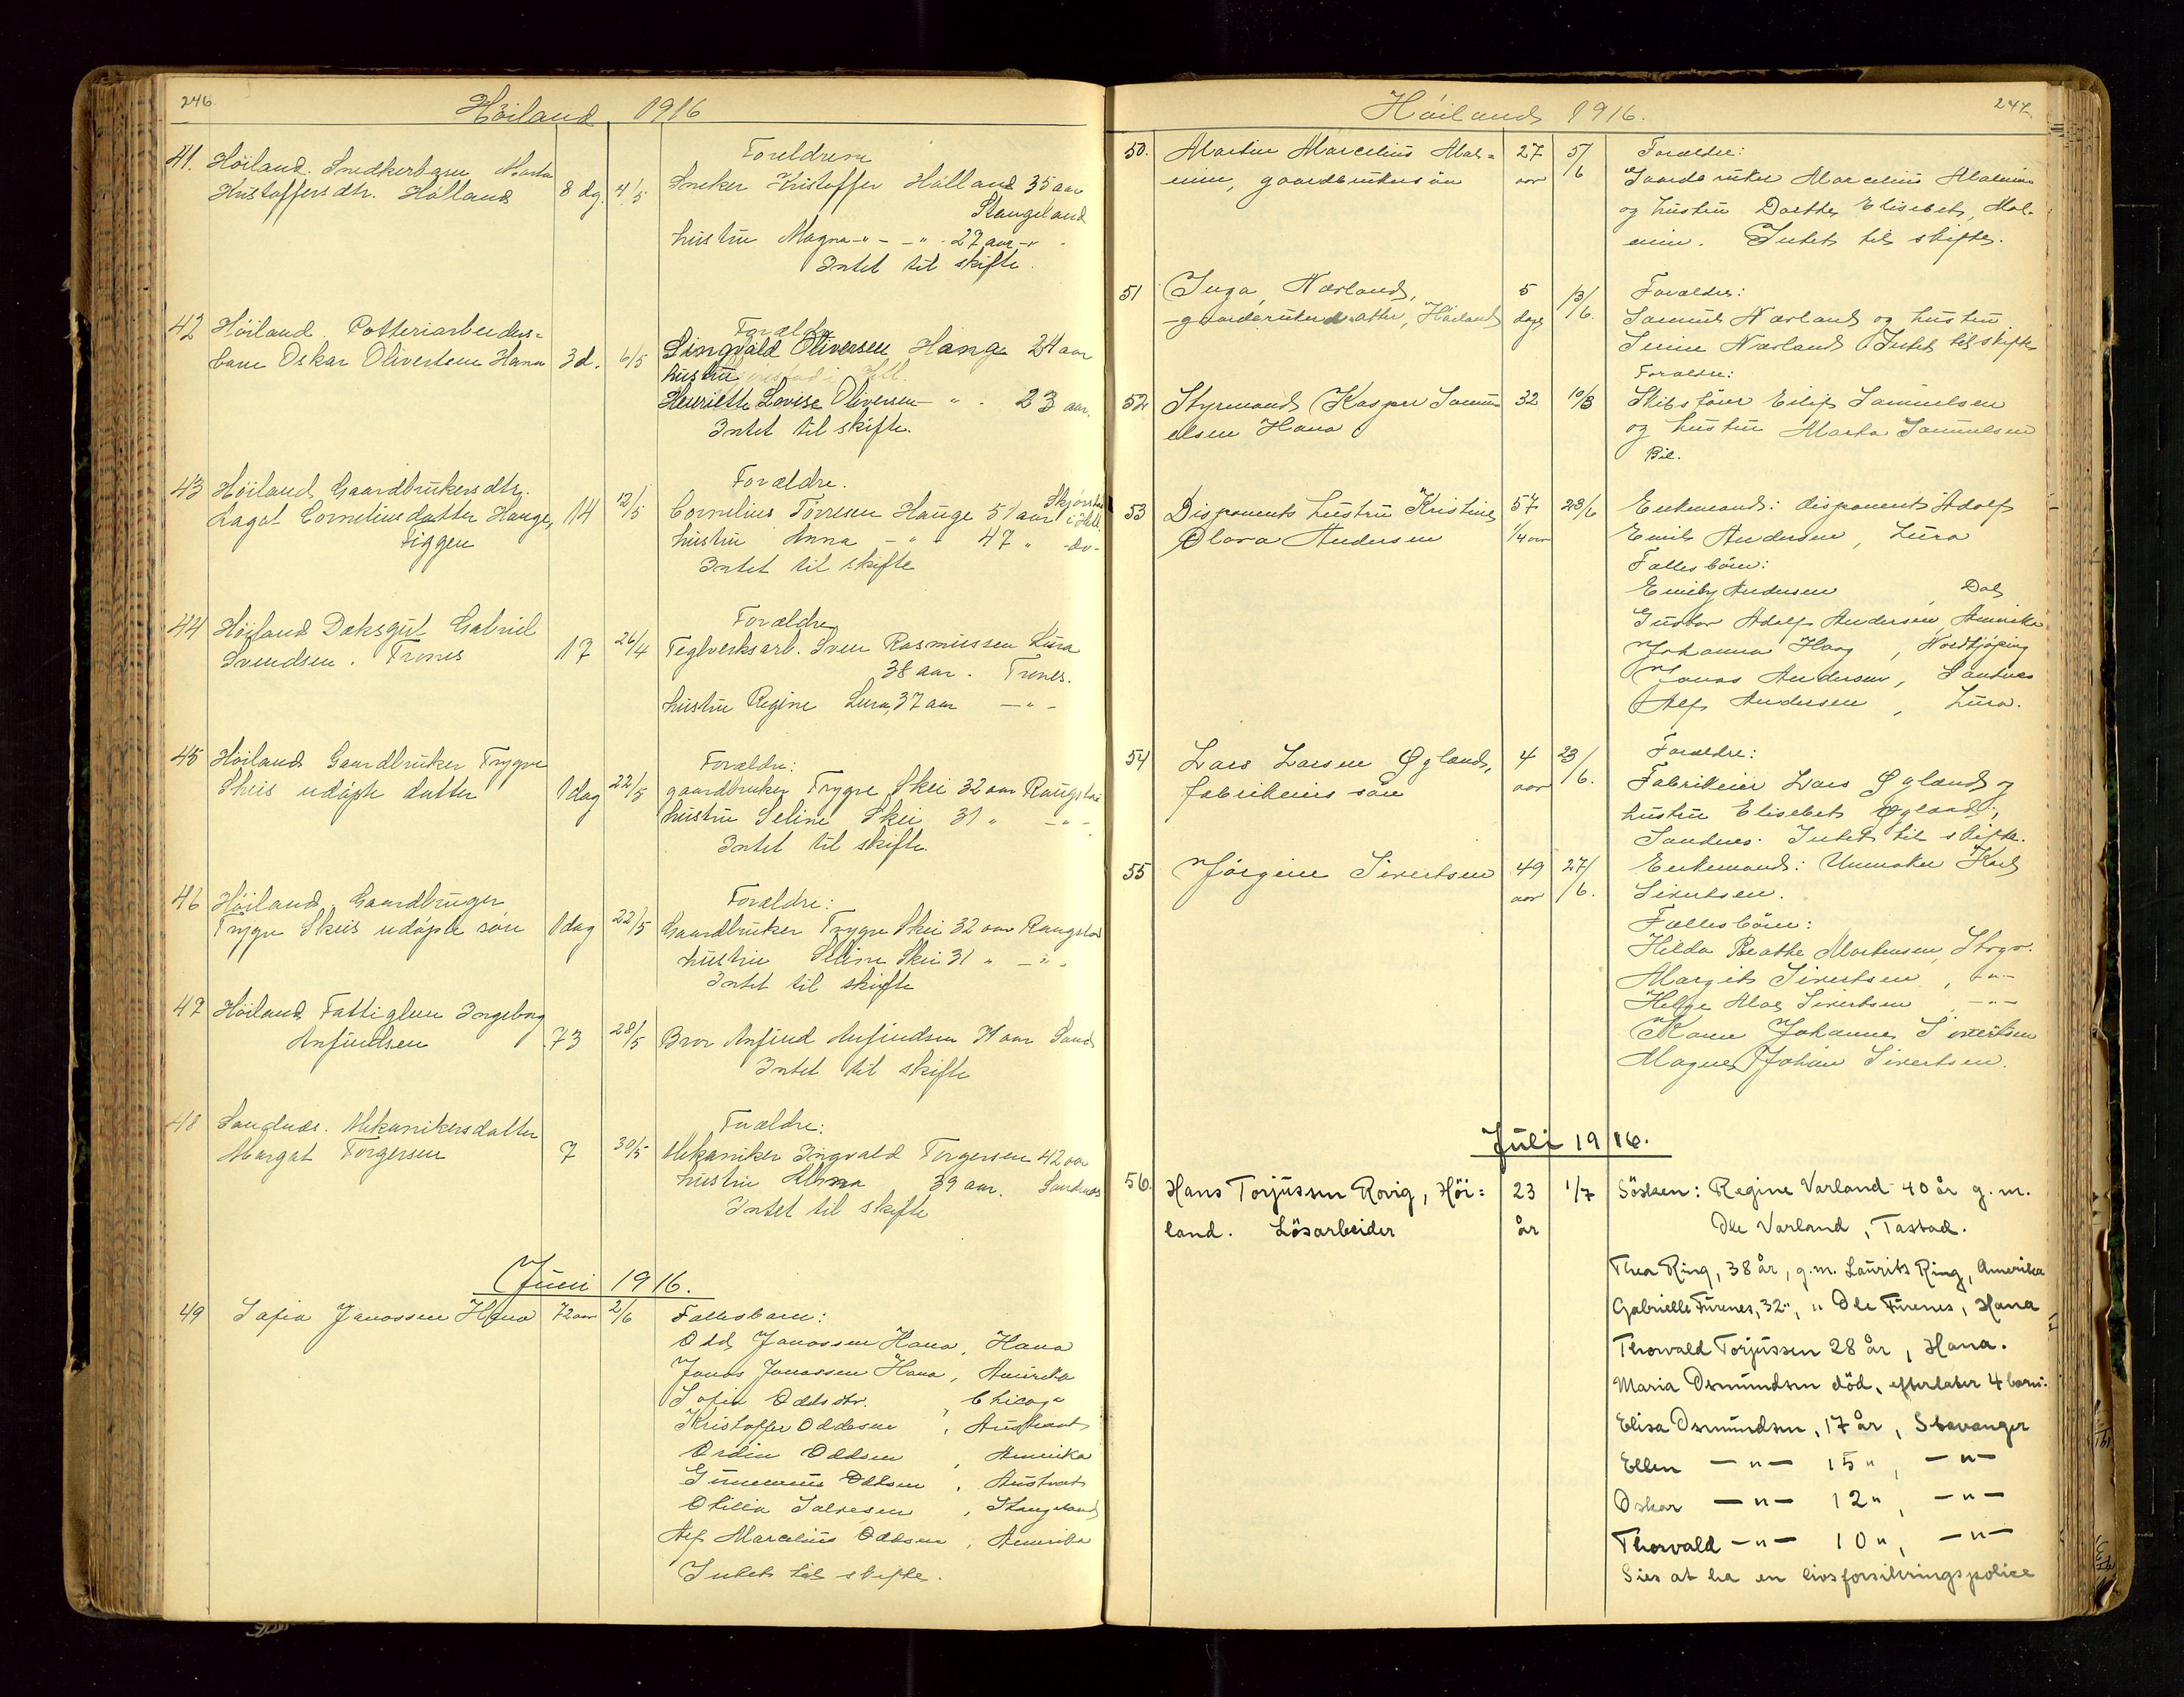 246.
Höiland 1916
41. Höiland. Snedkerbarn Marta
Kristoffersdtr. Hålland 8 dg. 4/5
Foreldrene
Sneker Kristoffer Hålland 35 aar
Stangeland
hustru Magna -"- -"- 27 aar -"-
Intet til skifte.
42 Höiland. Potteriarbeiders=
barn Oskar Olivertsen Hana 3 d. 6/5
Forældre
Singvald Oliversen Hana 24 aar
hustru
Henriette Lovise Oliversen -"- 23 aar.
Intet til skifte.
43 Höiland Gaardbrukersdtr.
Lagat Corneliusdatter Hauge, 14 12/5
Figgen
Forældre.
Cornelius Törresen Hauge 51 aar
hustru Anna -"- 47 " -do-
Intet til skifte
44 Höiland Daksgut Gabriel
Svendsen. Trones 17 26/4
Forældre
Teglverksarb. Sven Rasmussen Lura
38 aar. Trones.
hustru Regine Lura, 37 aar -"-
45 Höiland Gaardbruker Trygve
Skeis udöpte datter 1 dag 22/5
Forældre:
gaardbruker Trygve Skei 32 aar Raugstad
hustru Seline Skei 31 " -"-
Intet til skifte.
46 Höiland. Gaardbruger
Trygve Skeis udöpte sön 1 dag 22/5
Forældre:
Gaardbruker Trygve Skei 32 aar Raugstad
hustru Seline Skei 31 " -"-
Intet til skifte
47 Höiland Fattiglem Ingeborg
Anfindsen 73 28/5
Bror Anfind Anfindsen 74 aar Sand
Intet til skifte
48 Sandnes. Mekanikersdatter
Margot Torgersen 7 30/5
Forældre:
Mekaniker Ingvald Torgersen 42 aar
hustru Anna 39 aar. Sandnes
Intet til skifte
Juni 1916.
49 Sofia Janossen Hana 72 aar 2/6
Fællesbarn:
Odd Janossen Hana, Hana
Jonas Janossen Hana, Amerika
Sofia Oddsdtr. , Chicago
Kristoffer Oddesen , Austraat
Ordin Oddsen , Amerika
Gunnerius Oddsen , Austraat
Otilia Salvesen , Stangeland
Alf Marcelius Oddsen , Amerika
Intet til skifte.
247.
Höiland 1916.
50. Martin Marcelius Mal=
enin, gaardbrukersön 27 aar 5/6
Forældre:
Gaardbruker Marcelius Malenin
og hustru Dorthe Elisebet, Mal-
enin. Intet til skifte.
51 Inga Nærland,
-gaardbrukerdatter, Höiland 5 dage 13/6.
Forældre:
Samuel Nærland og hustru
Serine Nærland Intet til skifte
52 Styrmand Kasper Samu=
elsen Hana 32 10/3
Forældre:
Skibsförer Eilif Samuelsen
og hustru Marta Samuelsen
Bil.
53 Disponents hustru Kristine
Olava Andersen 57 1/4 aar 23/6
Enkemand: disponent Adolf
Emil Andersen, Lura
Fællesbörn:
Emily Andersen , Dal
Gustav Adolf Andersen, Amerika
Johanna Haag , Nordkjöping
Jonas Andersen, Sandnes
Alf Andersen , Lura.
54 Lars Larsen Øgland,
fabrikeiers sön 4 aar 23/6.
Forældre:
Fabrikeier Lars Øgland og
hustru Elisebet Øgland,
Sandnes. Intet til skifte.
55 Jörgine Sivertsen 49 aar 27/6.
Enkemand: Urmaker Karl
Sivertsen.
Fællesbörn:
Hilda Beathe Mortensen, Stvgr.
Margit Sivertsen , -"-
Helge Alos Sivertsen -"-
Johannes Sivertsen
Magnus Johan Sivertsen.
Juli 1916.
56. Hans Torjussen Rovig, Höi=
land. Lösarbeider 23 år 1/7
Sösken: Regine Varland 40 år g.m.
Ole Varland, Tastad.
Thea Ring, 38 år, g.m. Laurits Ring, Amerika
Gabrielle Furenes, 32 ", " Ole Furenes, Hana
Thorvald Torjussen 28 år, Hana.
Maria Osmundsen död, efterlater 4 barn:
Elisa Osmundsen, 17 år, Stavanger
Ellen -"- 15 ", -"-
Oskar -"- 12 ", -"-
Thorvald -"- 10 ", -"-
Sies at ha en livsforsikringspolice